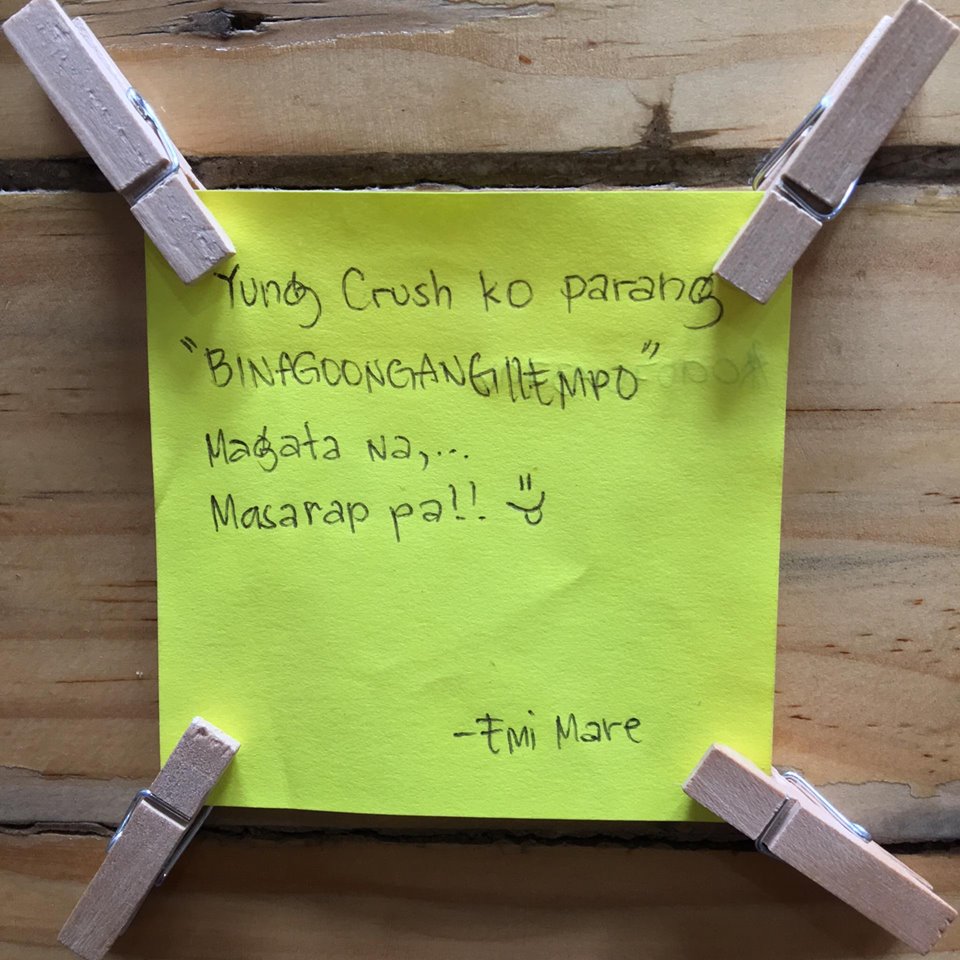 Yung Crush ko parang
"BINAGOONGANG LIEMPO"
Magata na,...
Masarap pa!!
-Emi Mare